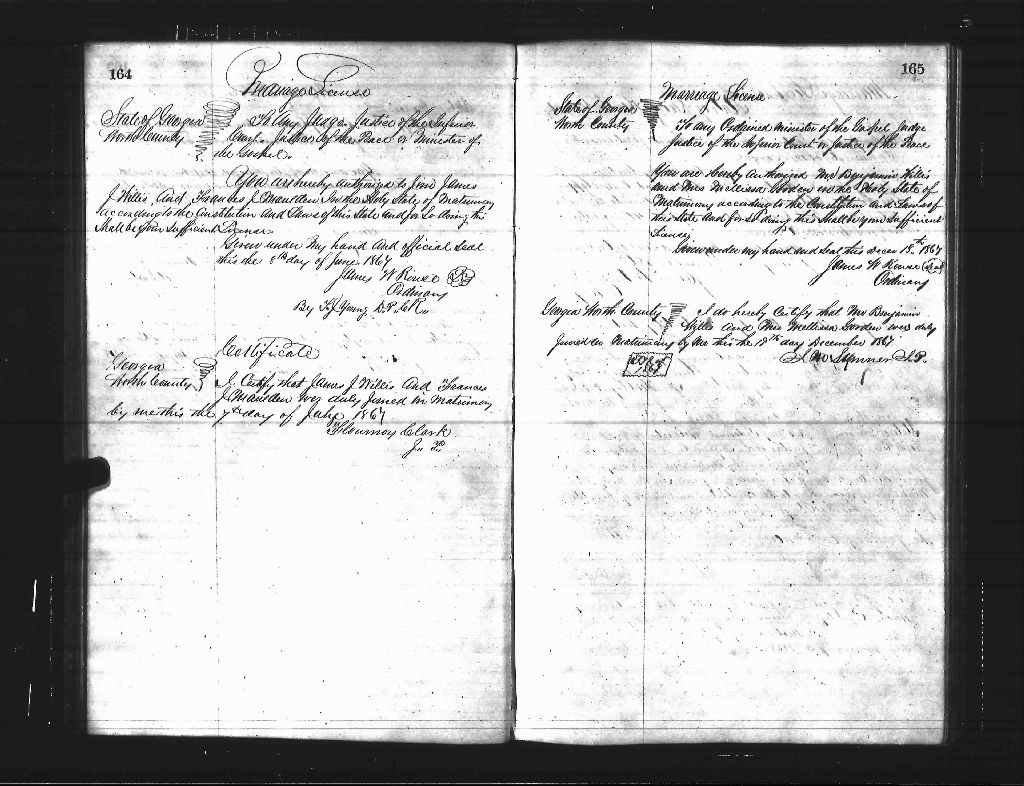 164
Marriage License
State of Georgia
Worth County
To Any Judge Justice of the Superior
Court. Justice of the Peace or Minister of
the Gospel.
You are hereby authorized to Join James
J Willis, And Frances J. In the Holy State of Matrimony
according to the Constitution And Laws of this State And for so doing this
Shall be your Sufficient License.
Given under My hand And official Seal
this the 8th day of June 1867
James W Rouse
Ordinary
By Young D.P. Clk.
Certificate
Georgia
Worth County
I Certify that James J Willis And Frances
J. was duly Joined in Matrimony
by me this the 7th day of July 1867
Flournoy Clark
165
Marriage License
State of Georgia
Worth County
To any Ordained Minister of the Gospel Judge
Justice of the Inferior Court or Justice of the Peace
You are Hereby Authorized Mr Benjamin Willis
and Mrs Mellissa in the Holy State of
Matrimony according to the Constitution And Laws of
this State And for so doing this Shall be your Sufficient
License
Given under my hand and Seal this Decr 18th 1867
James W Rouse Seal
Ordinary
Georgia Worth County
I do hereby Certify that Mr Benjamin
Willis And Mrs Mellissa were duly
Joined in Matrimony by Me this the day December 1867
Sumner J.P.
1867